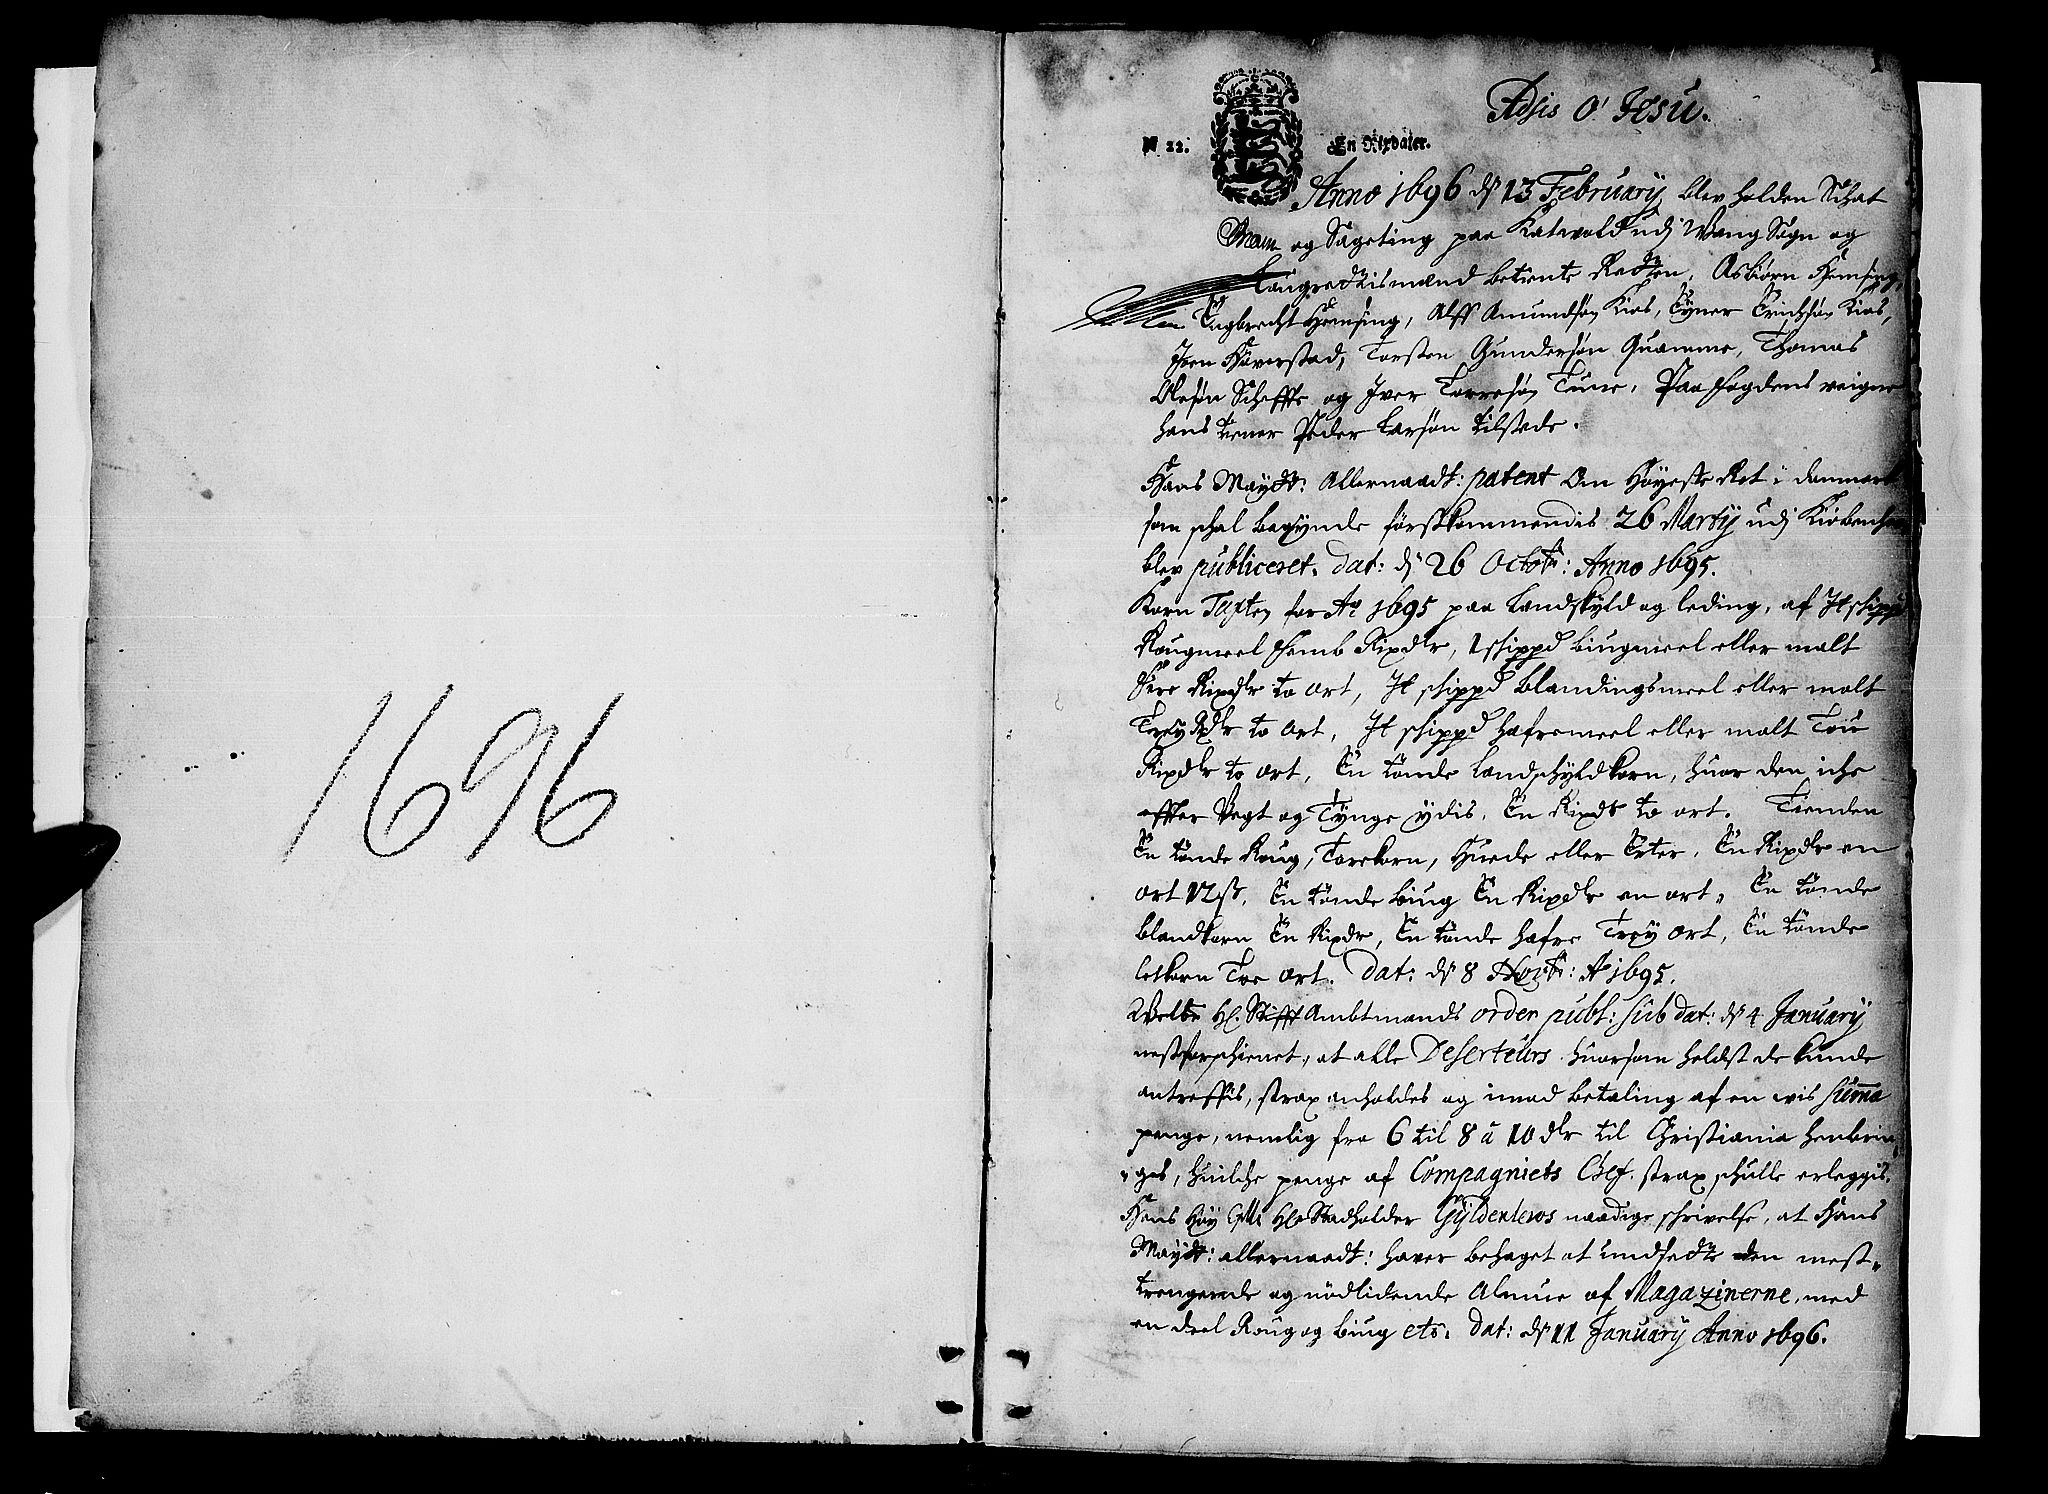 1696
1
Adsis O Jesu.
N 22. En Rixdaler.
Anno 1696 dn 13 February blev holden Schat
og Sageting paa Katvold udj Wang Sogn og
Laugrettismænd betiente Retten, Asbiørn Hemsing,
Engbrecht Hemsing, Alff Amundsøn Kios, Eyner Erichsøn Kios,
Iven Høverstad, Torsten Gundersøn Quamme, Thomas
Olesøn Scheffte og Iver Torresøn Tune, Paa fogdens veigne
hans tiener Peder Larsøn tilstede.
Hans Mayst: Allernaadt: patent Om Høyeste Ret i danmark
som schal begynde førstkommendis 26 Martij udj Kiøbenhav
blev publiceret, dat: dj 26 Octobr: Anno 1695.
Korn Taxten for Ao 1695 paa Landskyld og leding, af It schippd
Rougmeel Femb Rixdlr, 1 schippd biugmeel eller malt
Fire Rixdlr to ort, It schippd blandingsmeel eller malt
Trey Rdlr to ort, It schippd hafremeel eller malt Tou
Rixdlr to ort, En tønde landschyldkorn, huor den iche
effter Vegt og Tynge ydis, En Rixdr to ort. Tienden
En tønde Roug, Torekorn, Huede eller Erter, En Rixdlr en
ort 12 s, En tønde biug En Rixdlr en ort, En tønde
blandkorn En Rixdr, En tønde hafre Trey ort, En tønde
letkorn Toe ort. Dat: dn 8 Novbr: Ao 1695.
Welbr Hl. Stifft Ambtmands order publ: sub dat: dn 4 January
nestforschienet, at alle Deserteurs huorsom heldst de kunde
antreffis, strax anholdes og imod betaling af en vis summa
penge, nemlig fra 6 til 8 à 10 dlr til Christiania henbrin
ges, huilche penge af Compagniets Chef strax schulle erleggis.
Hans Høy Hl. Stadholder Gyldenlewes naadige schrivelse, at Hans
Mayst: allernaadt: haver behaget at undsette den mest
trengende og nødlidende Almue af Magazinerne, med
en deel Roug og biug etc. dat: dn 11 January Anno 1696.